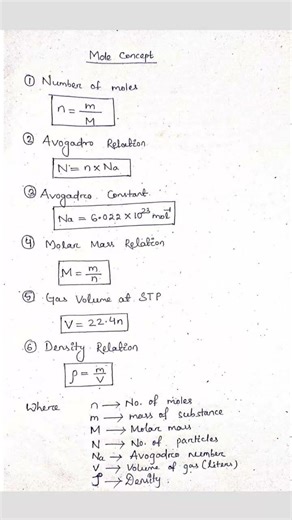 Mole Concept
① Number of moles
n = m/M
② Avogadro Relation
N = n × Na
③ Avogadro Constant
Na = 6.022 × 10²³ mol⁻¹
④ Molar Mass Relation
M = m/n
⑤ Gas Volume at STP
V = 22.4n
⑥ Density Relation
ρ = m/V
Where n → No. of moles
m → mass of substance
M → Molar mass
N → No. of particles
Na → Avogadro number
V → Volume of gas (liters)
ρ → Density.